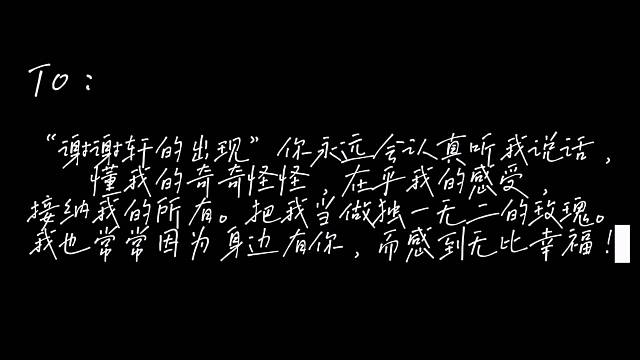 To：
“谢谢轩的出现”你永远会认真听我说话，
懂我的奇奇怪怪，在乎我的感受，
接纳我的所有。把我当做独一无二的玫瑰。
我也常常因为身边有你，而感到无比幸福！